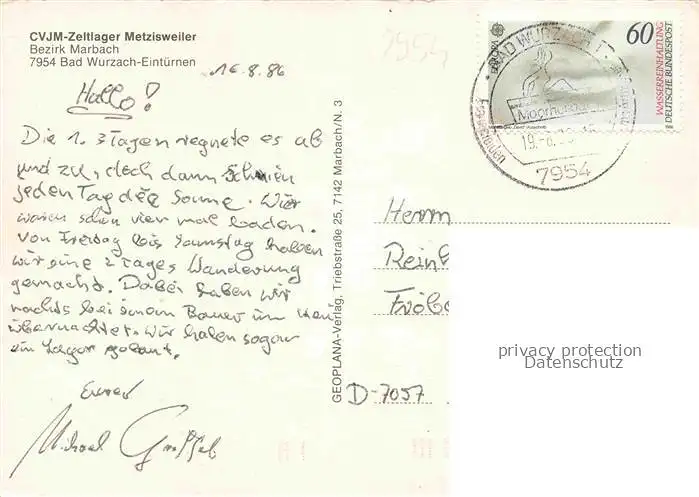 CVJM-Zeltlager Metzisweiler
Bezirk Marbach
7954 Bad Wurzach-Eintürnen
16.8.86
Hallo!
Die 1. 3 Tagen regnete es ab
und zu, doch dann schien
jeden Tag die Sonne. Wir
waren schon vier mal baden.
Von Freitag bis Samstag haben
wir eine 2 Tages Wanderung
gemacht. Dabei haben wir
nachts bei einem Bauer im Heu
übernachtet. Wir haben sogar
ein Lager gebaut.
Euer
Michael
GEOPLANA-Verlag, Triebstraße 25, 7142 Marbach/N. 3
7954
EUROPA
60
WASSERREINHALTUNG
DEUTSCHE BUNDESPOST
BAD WURZACH 1
19.-8.
7954
Herrn
Rein
Fröbe
D-7057
privacy protection
Datenschutz